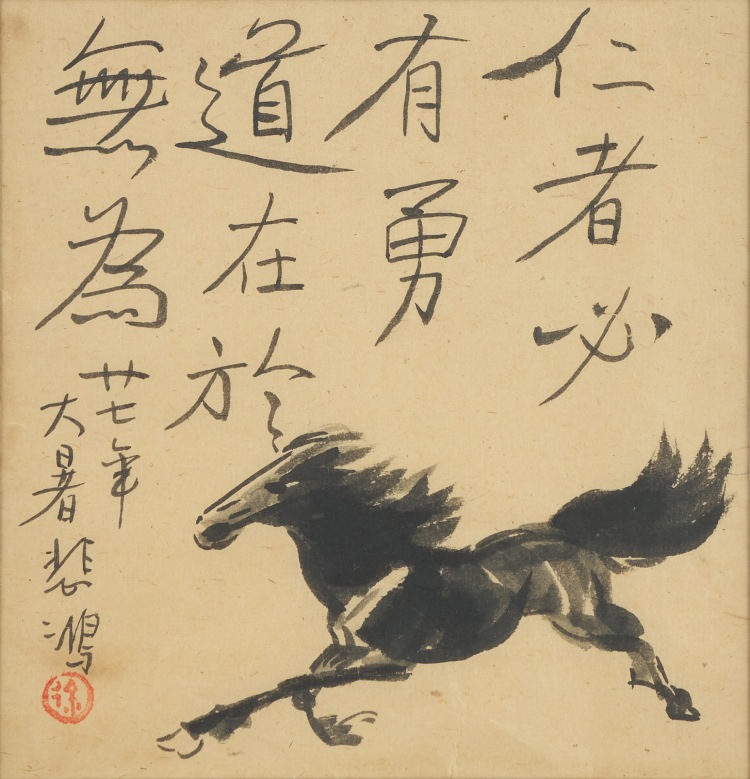 仁者必
有勇
道在於
無為
廿七年
大暑悲鴻
徐